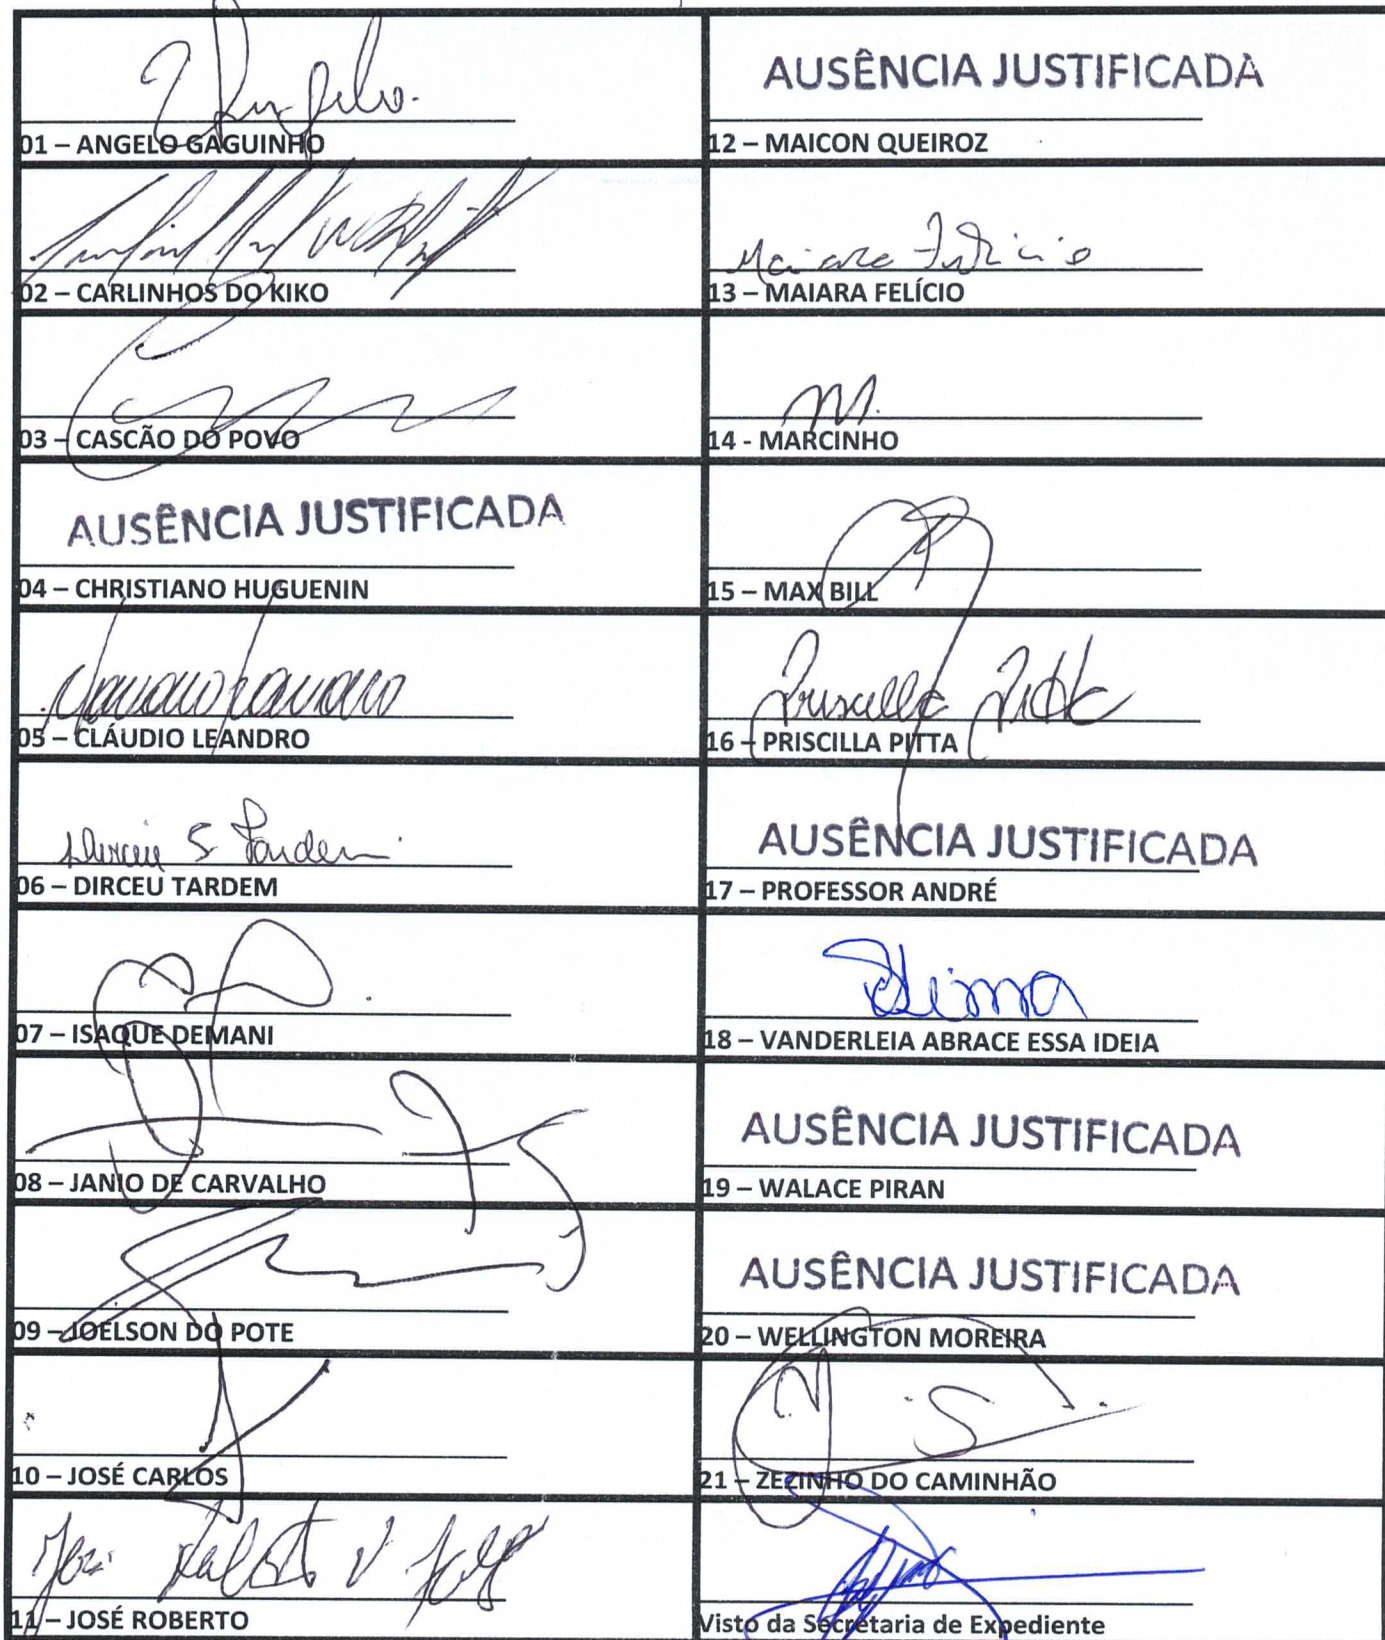 01 – ANGELO GAGUINHO
02 – CARLINHOS DO KIKO
03 – CASCÃO DO POVO
AUSÊNCIA JUSTIFICADA
04 – CHRISTIANO HUGUENIN
05 – CLÁUDIO LEANDRO
06 – DIRCEU TARDEM
07 – ISAQUE DEMANI
08 – JANIO DE CARVALHO
09 – JOELSON DO POTE
10 – JOSÉ CARLOS
11 – JOSÉ ROBERTO
AUSÊNCIA JUSTIFICADA
12 – MAICON QUEIROZ
Maiara Felicio
13 – MAIARA FELÍCIO
M.
14 - MARCINHO
15 – MAX BILL
Priscilla Pitta
16 – PRISCILLA PITTA
AUSÊNCIA JUSTIFICADA
17 – PROFESSOR ANDRÉ
18 – VANDERLEIA ABRACE ESSA IDEIA
AUSÊNCIA JUSTIFICADA
19 – WALACE PIRAN
AUSÊNCIA JUSTIFICADA
20 – WELLINGTON MOREIRA
21 – ZEZINHO DO CAMINHÃO
Visto da Secretaria de Expediente